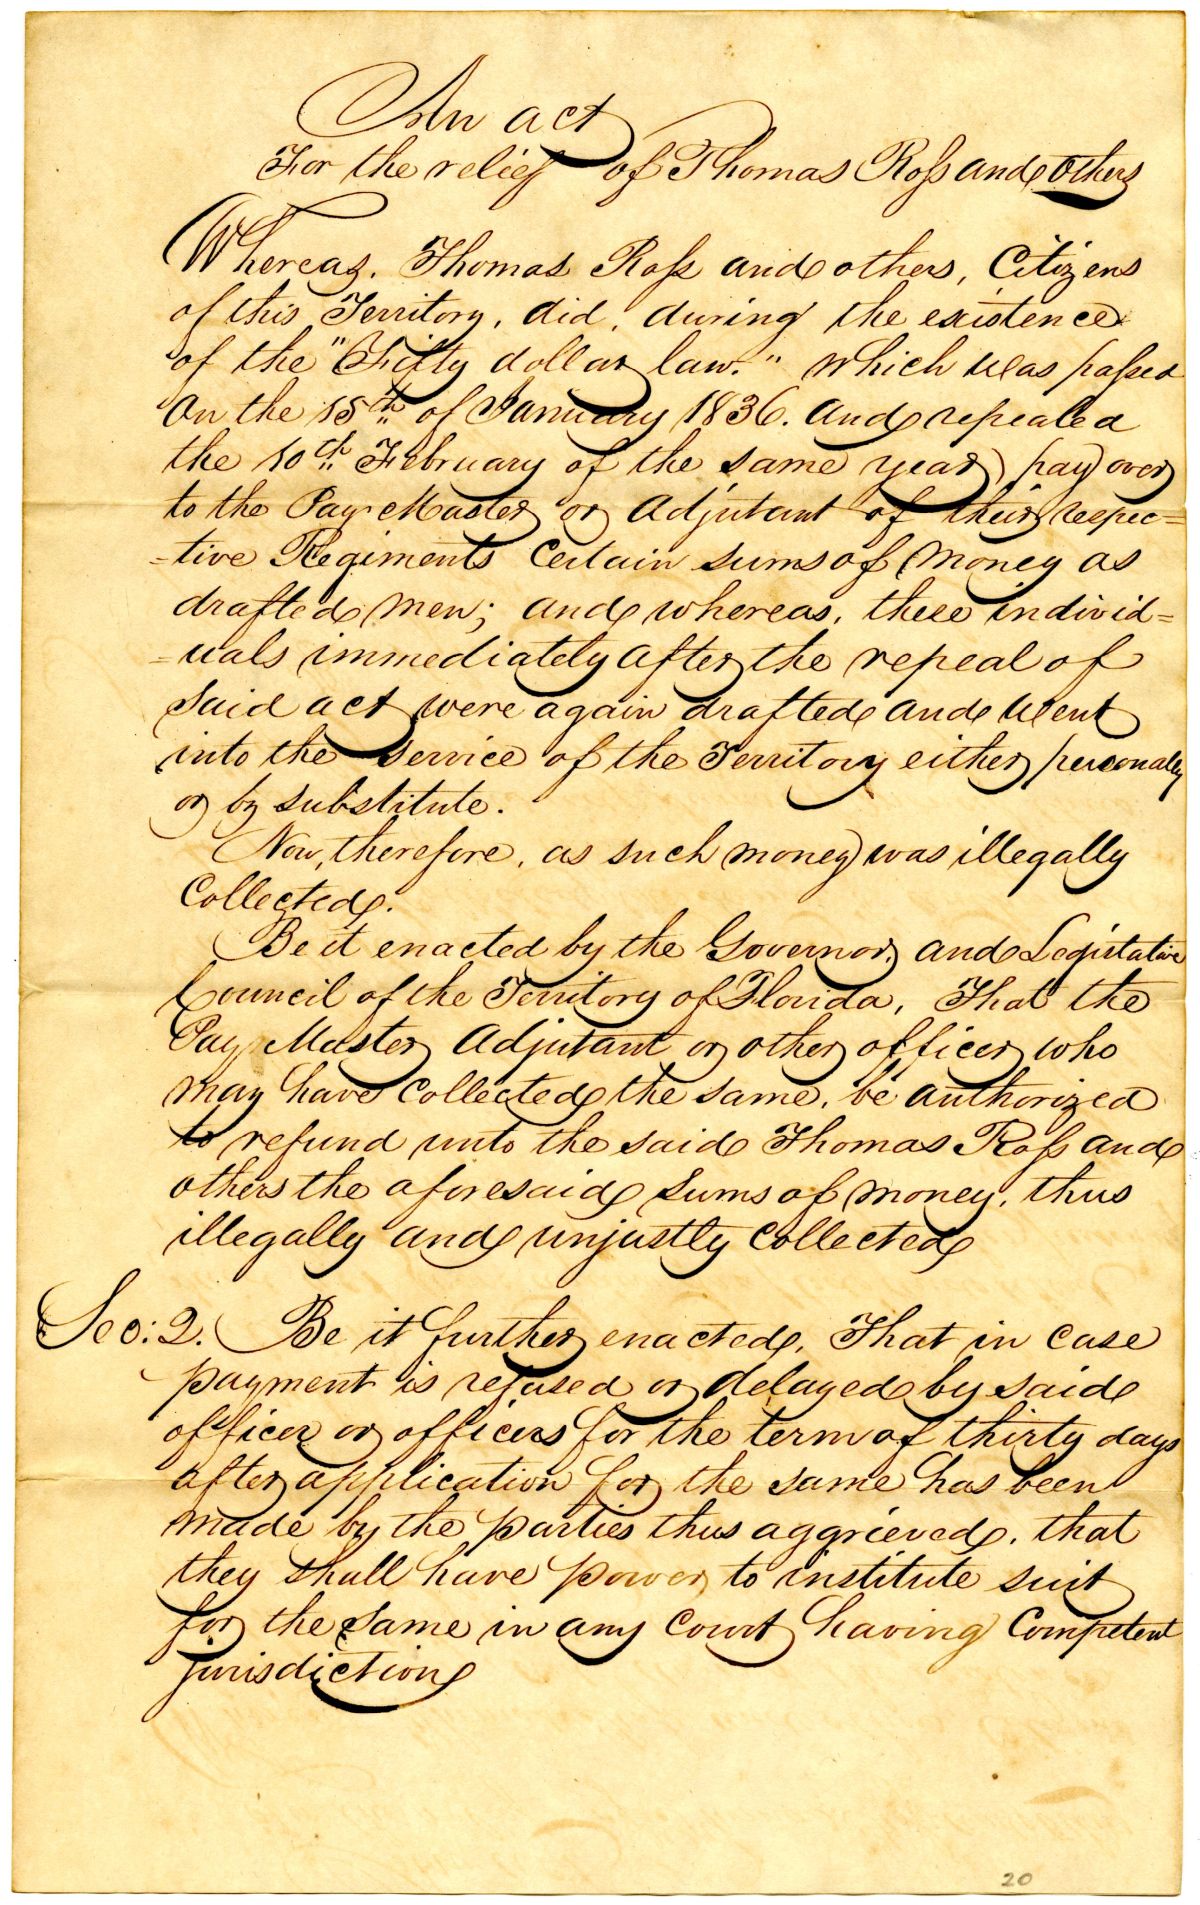 An act
For the relief of Thomas Ross and others
Whereas, Thomas Ross and others, Citizens
of this Territory, did, during the existence
of the "Fifty dollar law," which was passed
on the 15th of January 1836. and repealed
the 10th February of the same year, pay over
to the Pay Master or Adjutant of their respec=
=tive Regiments Certain sums of money as
drafted men; and whereas, these individ=
=uals immediately after the repeal of
said act were again drafted and went
into the service of the Territory either personally
or by substitute.
Now, therefore, as such money was illegally
Collected.
Be it enacted by the Governor, and Legistative
Council of the Territory of Florida, That the
Pay Master Adjutant or other officer who
may have Collected the same, be authorized
to refund unto the said Thomas Ross and
others the aforesaid sums of money, thus
illegally and unjustly Collected
Sec: 2. Be it further enacted, That in case
payment is refused or delayed by said
officer or officers for the term of thirty days
after application for the same has been
made by the parties thus aggrieved, that
they shall have power to institute suit
for the same in any Court having Competent
jurisdiction
20